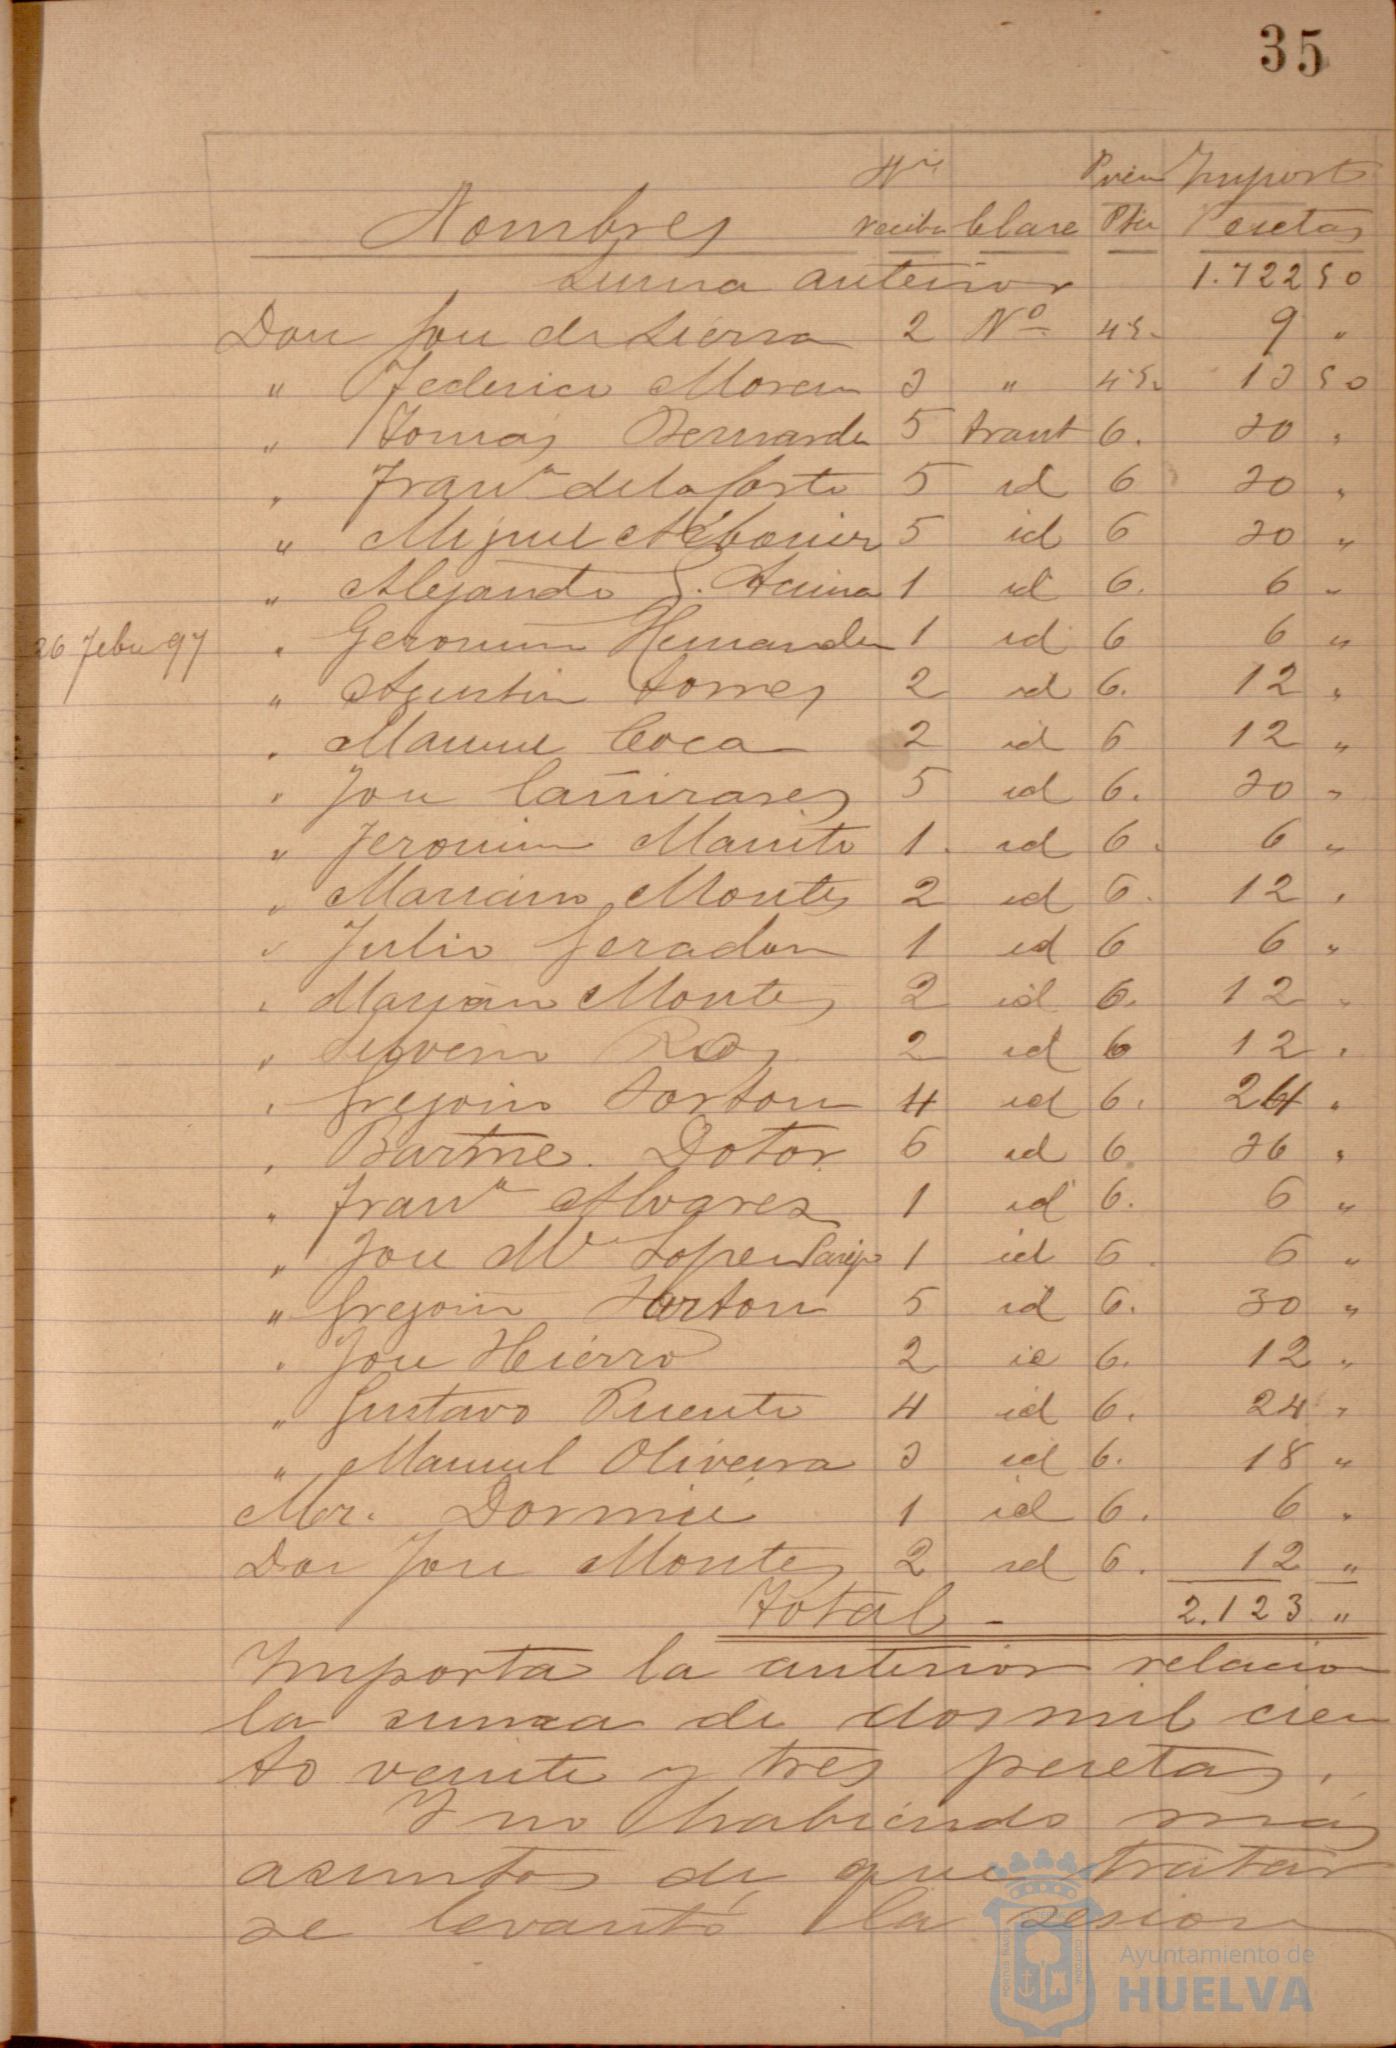 35
Nombres Nº recibo Clase Precio Ptas Importe Pesetas
Suma anterior 1.722 50
Don José de Sierra 2 Nº 4'5. 9 "
" Federico Moren 3 " 4'50 13 50
" Tomás Bernarde 5 trant 6. 30 "
" Franco de la Corte 5 id 6 30 "
" Miguel 5 id 6 30 "
" Alejandro 1 id 6. 6 "
26 Febro 97 " Geronimo Hernandez 1 id 6 6 "
" Agustin Torres 2 id 6. 12 "
" Manuel Coca 2 id 6 12 "
" José Cañizares 5 id 6. 30 "
" Jeronimo Manito 1. id 6. 6 "
" Mariano Montes 2 id 6. 12 "
" Julio 1 id 6 6 "
" Mariano Montes 2 id 6. 12 "
" 2 id 6 12 "
" Gregorio 4 id 6. 24 "
" Bartme. Dotor 6 id 6 36 "
" Franco Alvarez 1 id 6. 6 "
" José Mª Lopez 1 id 6. 6 "
" Gregorio 5 id 6. 30 "
" José Hierro 2 id 6. 12 "
" Gustavo Puente 4 id 6. 24 "
" Manuel Oliveira 3 id 6. 18 "
Mr. 1 id 6. 6 "
Don José Montes 2 id 6. 12 "
Total - 2.123 "
Importa la anterior relacion
la suma de dos mil cien
to veinte y tres pesetas.
Y no habiendo más
asuntos de que tratar
se levantó la sesion
Ayuntamiento de
HUELVA